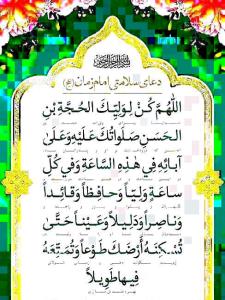 بسم الله الرحمن الرحیم
دعای سلامتی امام زمان (عج)
اَللّٰهُمَّ كُنْ لِوَلِيِّكَ الْحُجَّةِ بْنِ
الْحَسَنِ صَلَواتُكَ عَلَيْهِ وَعَلىٰ
آبائِهِ فِي هٰذِهِ السَّاعَةِ وَفِي كُلِّ
ساعَةٍ وَلِيّاً وَحافِظاً وَقائِداً
وَناصِراً وَدَليلاً وَعَيْناً حَتّىٰ
تُسْكِنَهُ أَرْضَكَ طَوْعاً وَتُمَتِّعَهُ
فِيها طَويلاً